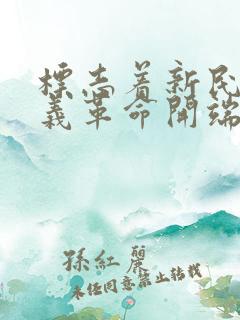 標志着新民
義革命開端
孫紅麗
未经同意禁止转载